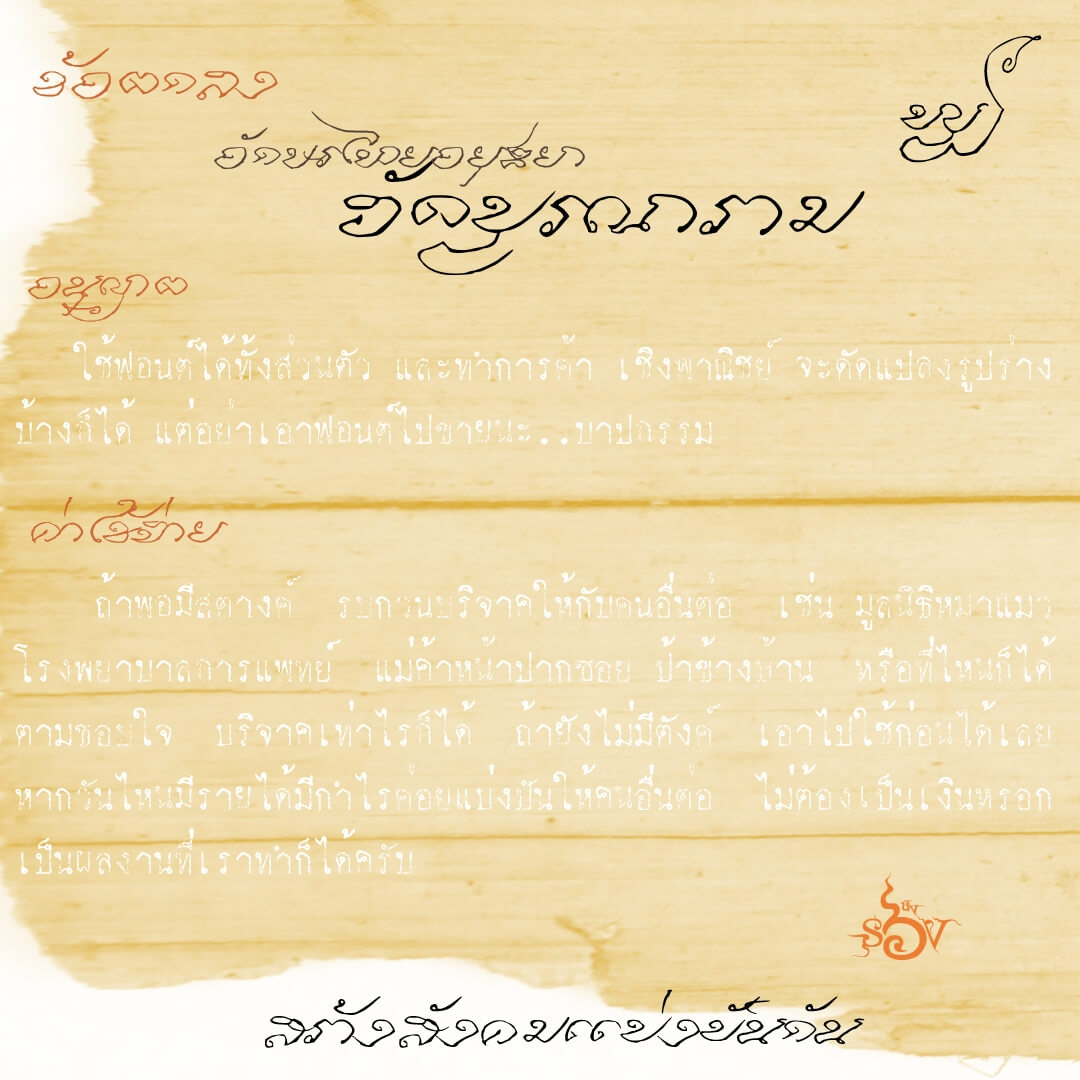 ข้อตกลง
ฟรี
อักษรไทยอยุธยา
วัดบูรณการาม
อนุญาต
ใช้ฟอนต์ได้ทั้งส่วนตัว และทำการค้า เชิงพาณิชย์ จะดัดแปลงรูปร่าง
บ้างก็ได้ แต่อย่าเอาฟอนต์ไปขายนะ..บาปกรรม
ค่าใช้จ่าย
ถ้าพอมีสตางค์ รบกวนบริจาคให้กับคนอื่นต่อ เช่น มูลนิธิหมาแมว
โรงพยาบาลการแพทย์ แม่ค้าหน้าปากซอย ป้าข้างบ้าน หรือที่ไหนก็ได้
ตามชอบใจ บริจาคเท่าไรก็ได้ ถ้ายังไม่มีตังค์ เอาไปใช้ก่อนได้เลย
หากวันไหนมีรายได้มีกำไรค่อยแบ่งปันให้คนอื่นต่อ ไม่ต้องเป็นเงินหรอก
เป็นผลงานที่เราทำก็ได้ครับ
สร้างสังคมแบ่งปันกัน